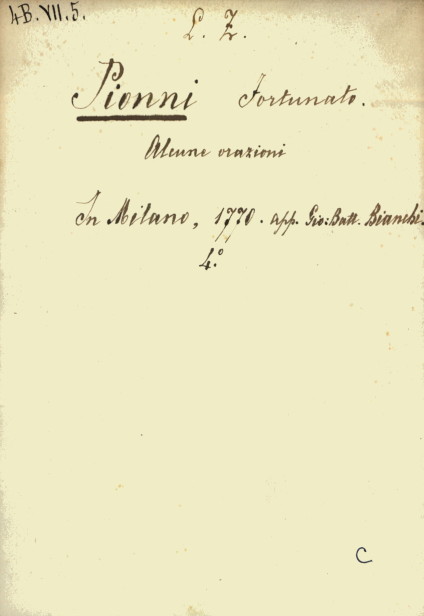 4B.VII.5.
L. Z.
Pionni Fortunato.
Alcune orazioni
In Milano, 1770. app. Gio: Batt. Bianchi.
4.º
C